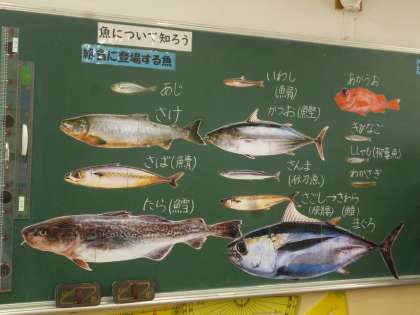 魚について知ろう
給食に登場する魚
あじ
さけ
さば(鯖)
たら(鱈)
いわし
(魚鰯)
かつお(鰹)
さんま
(秋刀魚)
さごし→さわら
(鰆)
まぐろ
あかうお
きびなご
ししゃも(柳葉魚)
わかさぎ